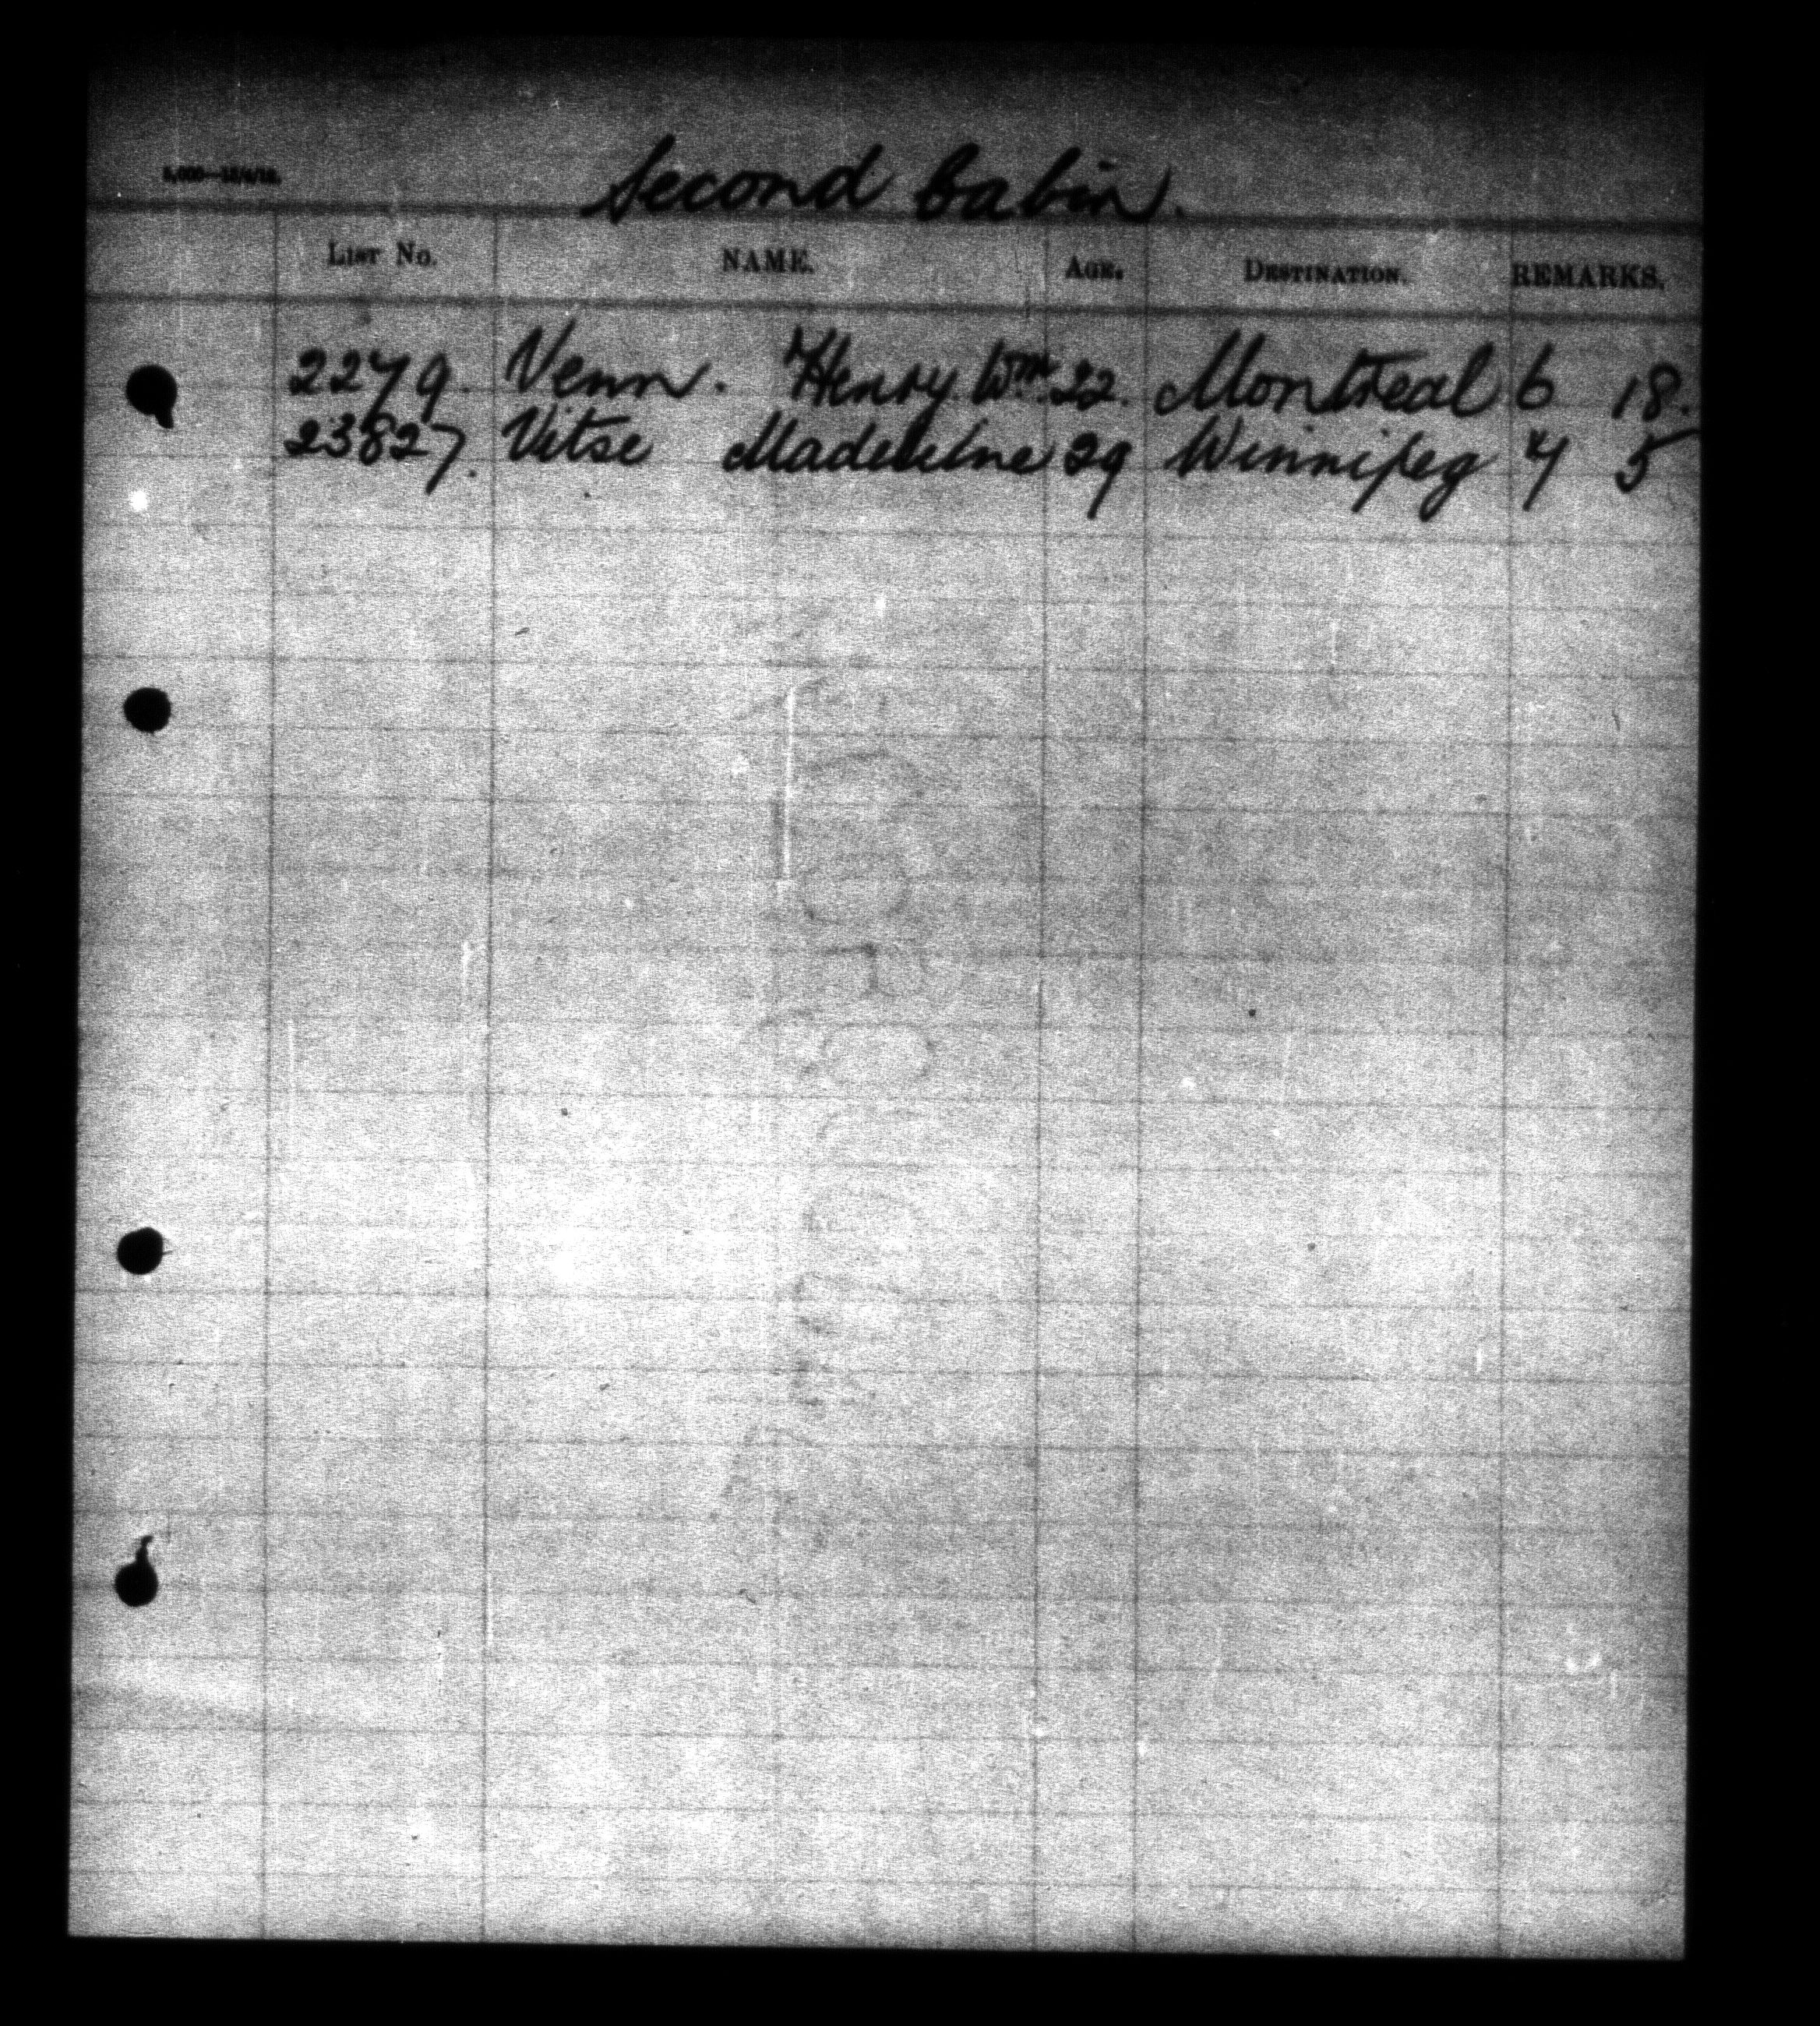 Second Cabin.
LIST No. NAME. AGE. DESTINATION. REMARKS.
2279. Venn. Henry. Wm. 22. Montreal 6 18.
23827. Vitse Madeleine 29 Winnipeg 7 5